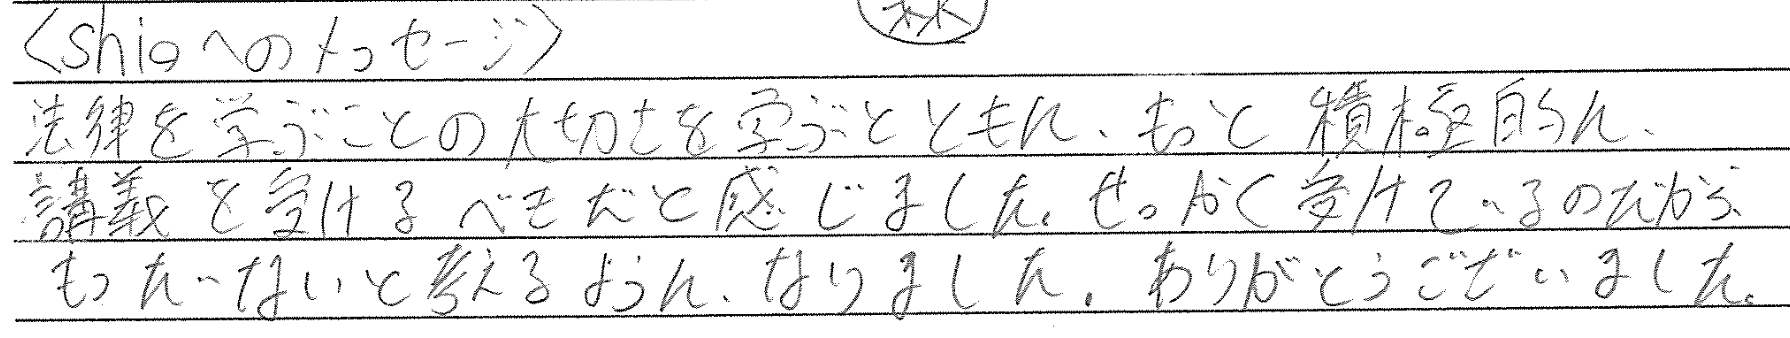 <Shioへのメッセージ>
法律を学ぶことの大切さを学ぶとともに、もっと積極的に、
講義を受けるべきだと感じました。せっかく受けているのだから、
もったいないと考えるように、なりました。ありがとうございました。